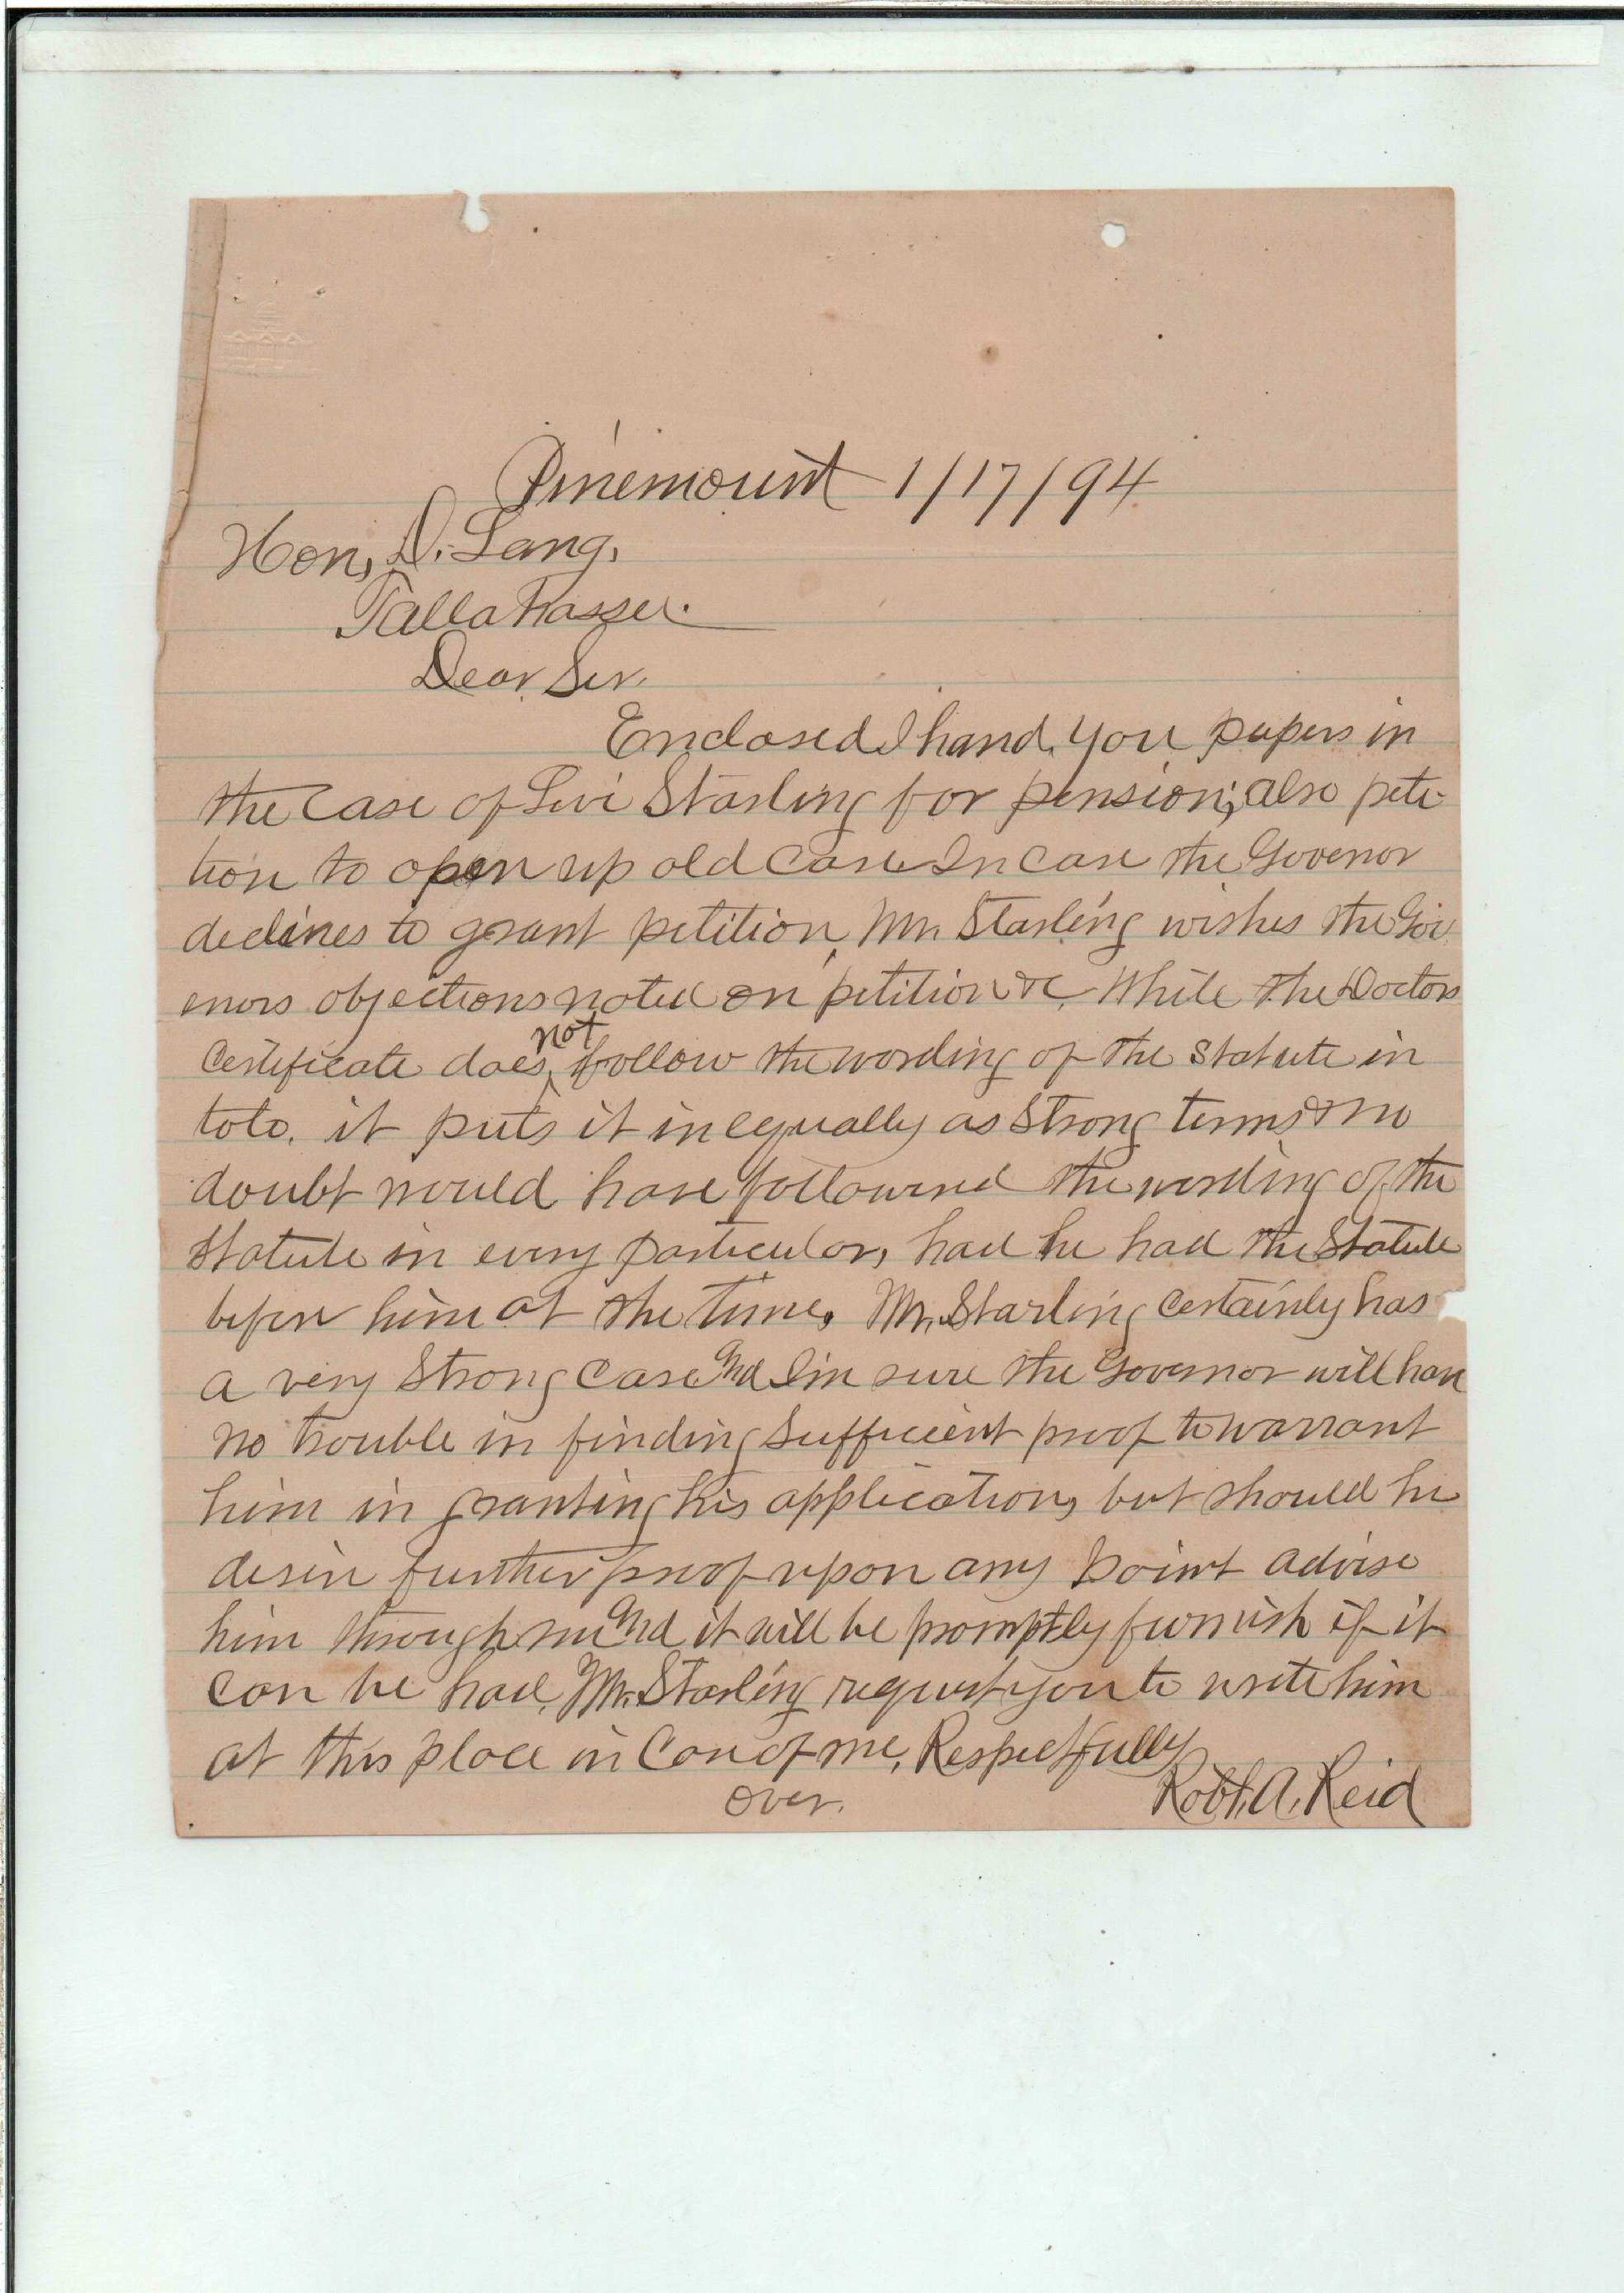 Pinemount 1/17/94
Hon, D. Lang,
Tallahassee.
Dear Sir.
Enclosed I hand you papers in
the case of Levi Starling for pension; also peti-
tion to open up old case In case the Govenor
declines to grant petition, Mr. Starling wishes the Gov
enors objections noted on petition &c. While the Doctors
Certificate does not follow the wording of the statute in
toto. it puts it in equally as strong terms & no
doubt would have followered the wording of the
statute in every particular, had he had the Statute
before him at the time. Mr. Starling certainly has
a very strong case And I'm sure the Governor will have
no trouble in finding sufficient proof to warrant
him in granting his application, but should he
desire further proof upon any point advise
him through me And it will be promptly furnish if it
can be had. Mr. Starling request you to write him
at this place in Care of me, Respectfully
over. Robt. A. Reid